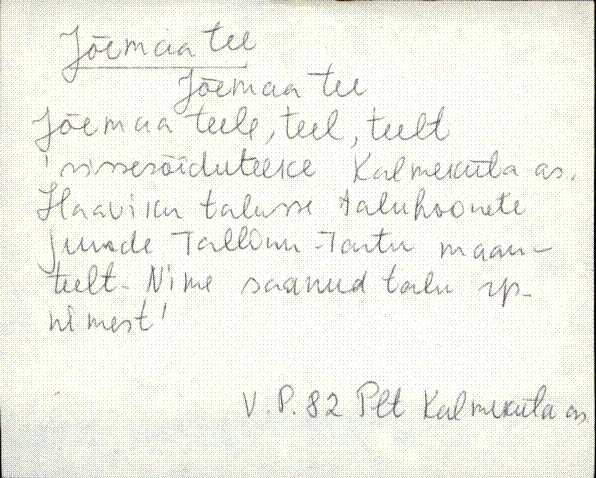 Jõemaa tee
Jõemaa tee
Jõemaa teele, teel, teelt
'sissesõiduteeke Kalmeküla as.
Haaviku talusse taluhoonete
juurde Tallinn-Tartu maan-
teelt. Nime saanud talu rp.
nimest'
V.P. 82 Plt Kalmeküla as.